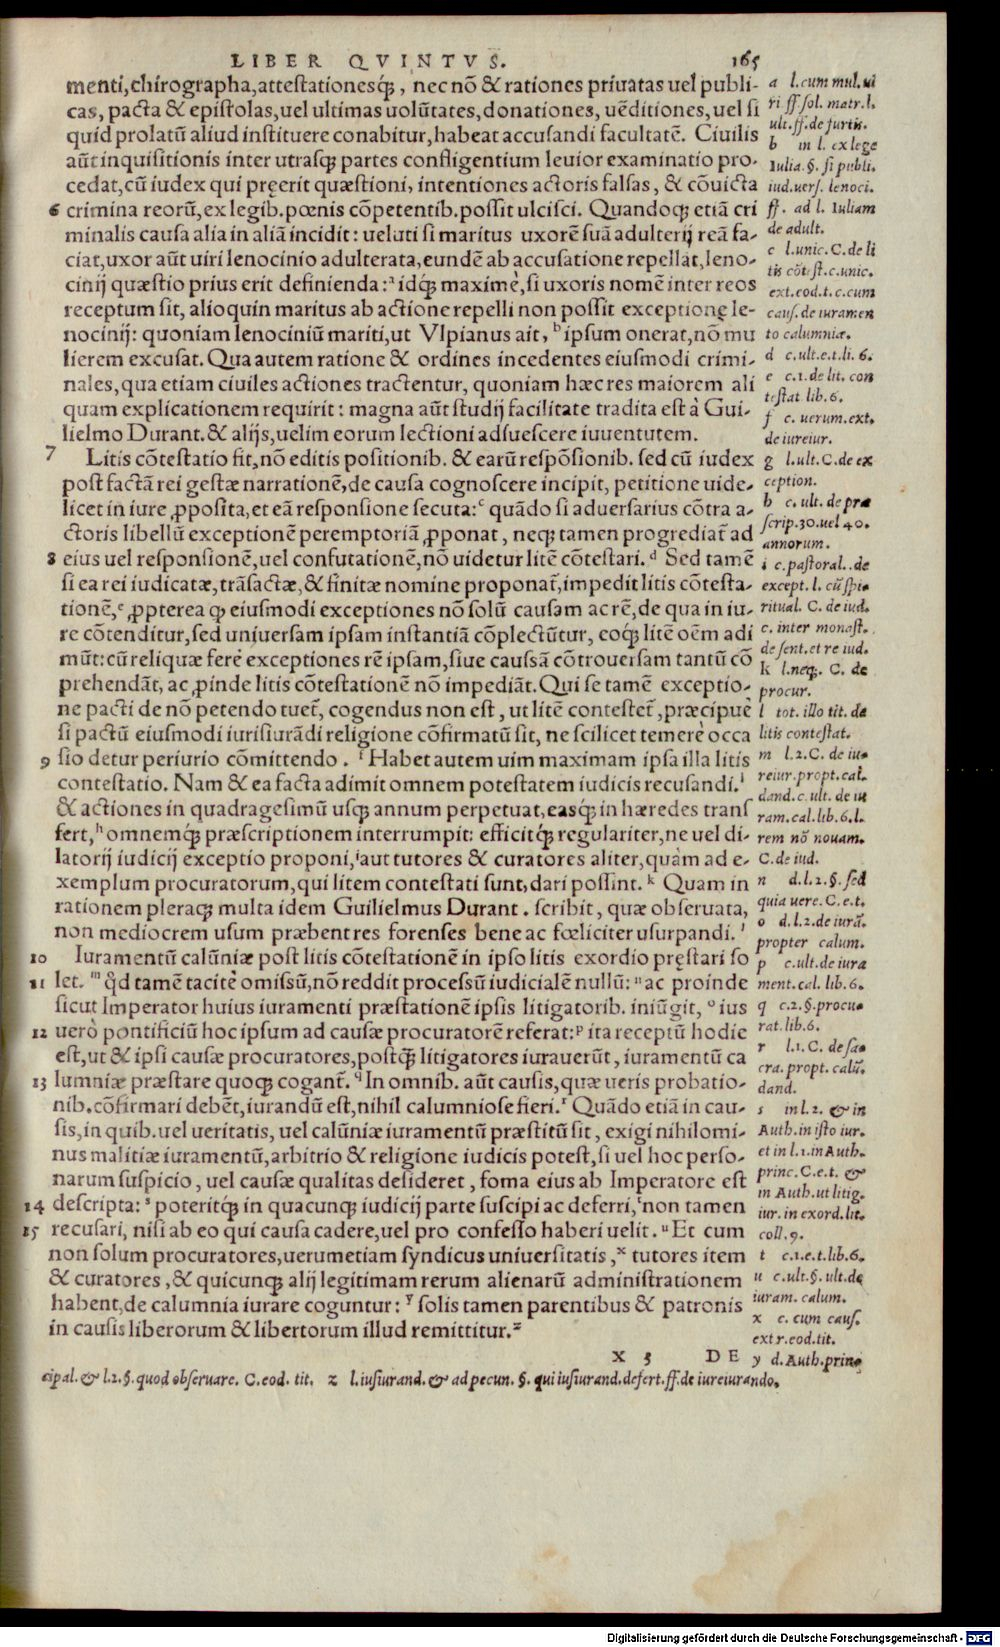 LIBER QVINTVS. 165
menti, chirographa, attestationesq́;, nec nõ & rationes priuatas uel publi-
cas, pacta & epistolas, uel ultimas uolũtates, donationes, uẽditiones, uel si
quid prolatũ aliud instituere conabitur, habeat accusandi facultatẽ. Ciuilis
aũt inquisitionis inter utrasq; partes confligentium leuior examinatio pro-
cedat, cũ iudex qui pręerit quæstioni, intentiones actoris falsas, & cõuicta
6 crimina reorũ, ex legib. pœnis cõpetentib. possit ulcisci. Quandoq; etiã cri
minalis causa alia in aliã incidit: ueluti si maritus uxorẽ suã adulterij reã fa-
ciat, uxor aũt uiri lenocinio adulterata, eundẽ ab accusatione repellat, leno-
cinij quæstio prius erit definienda:ᵃ idq́; maximè, si uxoris nomẽ inter reos
receptum sit, alioquin maritus ab actione repelli non possit exceptione le-
nocinij: quoniam lenociniũ mariti, ut Vlpianus ait, ᵇ ipsum onerat, nõ mu
lierem excusat. Qua autem ratione & ordines incedentes eiusmodi crimi-
nales, qua etiam ciuiles actiones tractentur, quoniam hæc res maiorem ali
quam explicationem requirit: magna aũt studij facilitate tradita est à Gui-
lielmo Durant. & alijs, uelim eorum lectioni adsuescere iuuentutem.
7 Litis cõtestatio fit, nõ editis positionib. & earũ respõsionib. sed cũ iudex
post factã rei gestæ narrationẽ, de causa cognoscere incipit, petitione uide-
licet in iure ꝓposita, et eã responsione secuta:ᶜ quãdo si aduersarius cõtra a-
ctoris libellũ exceptionẽ peremptoriã ꝓponat, neq; tamen progrediat̃ ad
8 eius uel responsionẽ, uel confutationẽ, nõ uidetur litẽ cõtestari. ᵈ Sed tamẽ
si ea rei iudicatæ, trãsactæ, & finitæ nomine proponat̃, impedit litis cõtesta-
tionẽ,ᵉ ꝓpterea ꝙ eiusmodi exceptiones nõ solũ causam ac rẽ, de qua in iu-
re cõtenditur, sed uniuersam ipsam instantiã cõplectũtur, eoq́; litẽ oẽm adi
mũt: cũ reliquæ ferè exceptiones rẽ ipsam, siue caussã cõtrouersam tantũ cõ
prehendãt, ac ꝓinde litis cõtestationẽ nõ impediãt. Qui se tamẽ exceptio-
ne pacti de nõ petendo tuet̃, cogendus non est, ut litẽ contestet̃, præcipuè
si pactũ eiusmodi iurisiurãdi religione cõfirmatũ sit, ne scilicet temerè occa
9 sio detur periurio cõmittendo. ᶠ Habet autem uim maximam ipsa illa litis
contestatio. Nam & ea facta adimit omnem potestatem iudicis recusandi.ᶦ
& actiones in quadragesimũ usq; annum perpetuat, easq́; in hæredes trans
fert,ʰ omnemq́; præscriptionem interrumpit: efficitq́; regulariter, ne uel di-
latorij iudicij exceptio proponi,ⁱ aut tutores & curatores aliter, quàm ad e-
xemplum procuratorum, qui litem contestati sunt, dari possint. ᵏ Quam in
rationem pleraq; multa idem Guilielmus Durant. scribit, quæ obseruata,
non mediocrem usum præbent res forenses bene ac fœliciter usurpandi. ˡ
10 Iuramentũ calũniæ post litis cõtestationẽ in ipso litis exordio pręstari so
11 let. ᵐ q̃d tamẽ tacitè omissũ, nõ reddit processũ iudicialẽ nullũ: ⁿ ac proinde
sicut Imperator huius iuramenti præstationẽ ipsis litigatorib. iniũgit, ᵒ ius
12 uerò pontificiũ hoc ipsum ad causæ procuratorẽ referat:ᵖ ita receptũ hodie
est, ut & ipsi causæ procuratores, postq̃; litigatores iurauerũt, iuramentũ ca
13 lumniæ præstare quoq; cogant̃. ᑫ In omnib. aũt causis, quæ ueris probatio-
nib. cõfirmari debẽt, iurandũ est, nihil calumniose fieri.ʳ Quãdo etiã in cau-
sis, in quib. uel ueritatis, uel calũniæ iuramentũ præstitũ sit, exigi nihilomi-
nus malitiæ iuramentũ, arbitrio & religione iudicis potest, si uel hoc perso-
narum suspicio, uel causæ qualitas desideret, foma eius ab Imperatore est
14 descripta: ˢ poteritq́; in quacunq; iudicij parte suscipi ac deferri,ᵗ non tamen
15 recusari, nisi ab eo qui causa cadere, uel pro confesso haberi uelit. ᵘ Et cum
non solum procuratores, uerumetiam syndicus uniuersitatis, ˣ tutores item
& curatores, & quicunq; alij legitimam rerum alienarũ administrationem
habent, de calumnia iurare coguntur: ʸ solis tamen parentibus & patronis
in causis liberorum & libertorum illud remittitur.ᶻ
X 3 DE
a l. cum mul. ui
ri ff. sol. matr. l.
ult. ff. de furtis.
b in l. ex lege
Iulia. §. si publi.
iud. uers. lenoci.
ff. ad l. Iuliam
de adult.
c l. unic. C. de li
tis cõtest. c. unic.
ext. eod. t. c. cum
caus. de iuramen
to calumniæ.
d c. ult. e. t. li. 6.
e c. 1. de lit. con
testat. lib. 6.
f c. uerum. ext.
de iureiur.
g l. ult. C. de ex
ception.
h c. ult. de præ
scrip. 30. uel 40.
annorum.
i c. pastoral. de
except. l. cũ spi-
ritual. C. de iud.
c. inter monast.
de sent. et re iud.
k l. neq;. C. de
procur.
l tot. illo tit. de
litis contestat.
m l. 2. C. de iu-
reiur. propt. cal.
dand. c. ult. de iu
ram. cal. lib. 6. l.
rem nõ nouam.
C. de iud.
n d. l. 2. §. sed
quia uere. C. e. t.
o d. l. 2. de iurã.
propter calum.
p c. ult. de iura
ment. cal. lib. 6.
q c. 2. §. procu-
rat. lib. 6.
r l. 1. C. de sa-
cra. propt. calũ.
dand.
s in l. 2. & in
Auth. in isto iur.
et in l. 1. in Auth.
princ. C. e. t. &
in Auth. ut litig.
iur. in exord. lit.
coll. 9.
t c. 1. e. t. lib. 6.
u c. ult. §. ult. de
iuram. calum.
x c. cum caus.
extr. eod. tit.
y d. Auth. prin-
cipal. & l. 2. §. quod obseruare. C. eod. tit. z l. iusiurand. & ad pecun. §. qui iusiurand. defert. ff. de iureiurando.
Digitalisierung gefördert durch die Deutsche Forschungsgemeinschaft - DFG